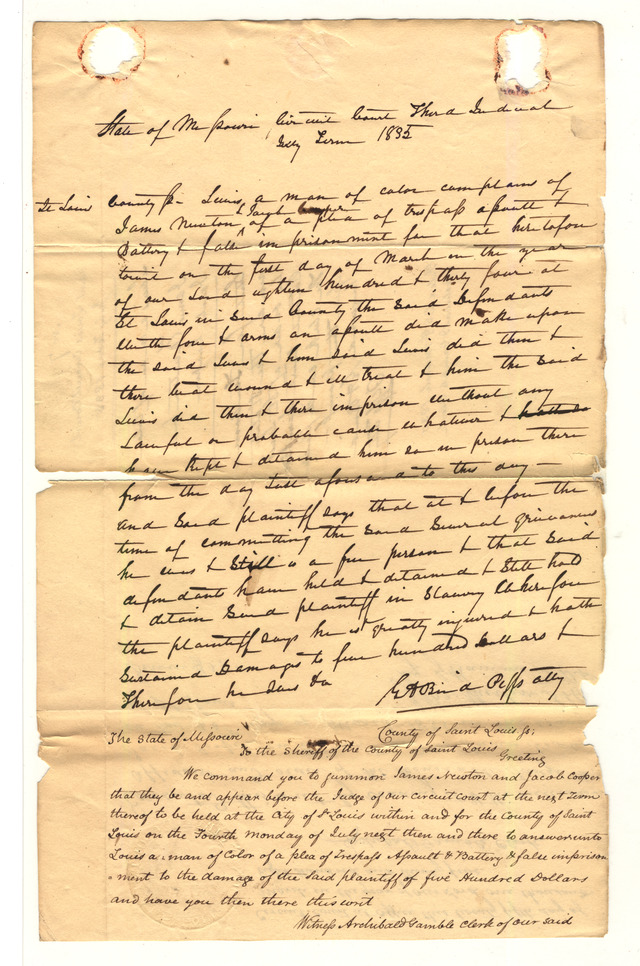 State of Missouri Circuit Court Third Judicial
July Term 1835
St Louis County ss. Lewis a man of color complains of
James Newton & Jacob Cooper of a plea of trespass assault &
Battery & false imprisonment for that heretofore
towit on the first day of March in the year
of our Lord eighteen hundred & thirty four at
St Louis in said County the said Defendants
with force & arms an assault did make upon
the said Lewis & him said Lewis did then &
there beat wound & ill treat & him the said
Lewis did then & there imprison without any
Lawful or probable cause whatever &
have kept & detained him so in prison there
from the day last aforesaid to this day –
And said plaintiff says that at & before the
time of committing the said several grievances
he was & still is a free person & that said
defendants have held & detained & still hold
& detain said plaintiff in Slavery Wherefore
the plaintiff says he is greatly injured & hath
sustained Damages to five hundred Dollars &
Therefore he sues &c
Plffs atty
The State of Missouri County of Saint Louis ss;
To the Sheriff of the County of Saint Louis
Greeting
We command you to summon James Newton and Jacob Cooper
that they be and appear before the Judge of our circuit court at the next Term
thereof to be held at the City of St Louis within and for the County of Saint
Louis on the Fourth Monday of July next then and there to answer unto
Louis a man of Color of a plea of Trespass Assault & Battery & false imprison
-ment to the damage of the said plaintiff of five Hundred Dollars
and have you then there this writ
Witness Archibald Gamble clerk of our said